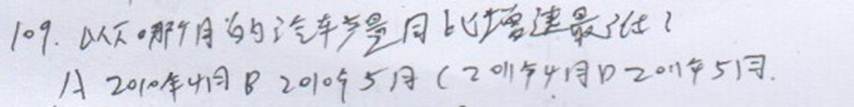 109. 以下哪个月的汽车产量同比增速最低?
A 2010年4月 B 2010年5月 C 2011年4月 D 2011年5月.